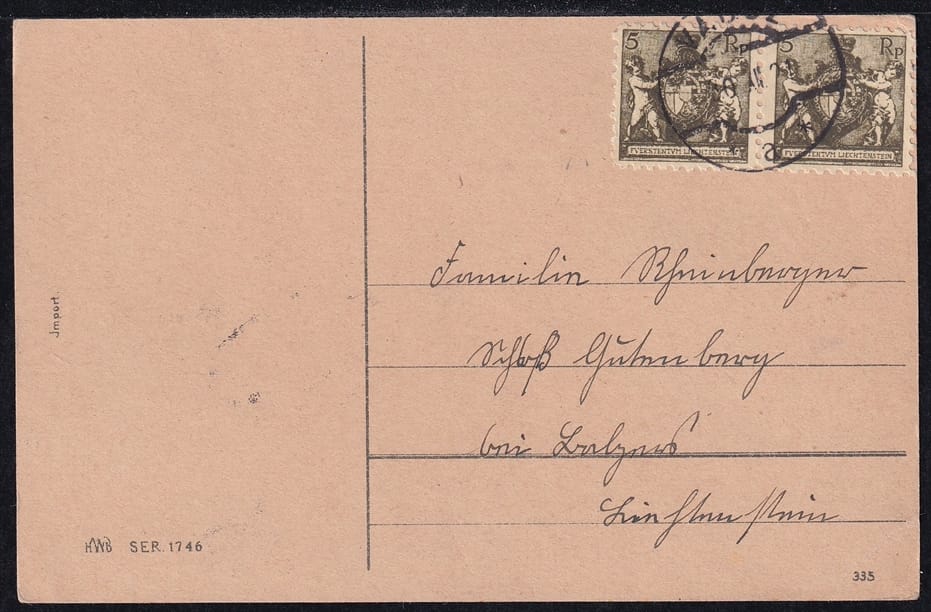 5 Rp 5 Rp
FVERSTENTVM LIECHTENSTEIN FVERSTENTVM LIECHTENSTEIN
VADUZ
a
Familie Rheinberger
Schloß Gutenberg
bei Balzers
Liechtenstein
Import
HWB SER. 1746
335